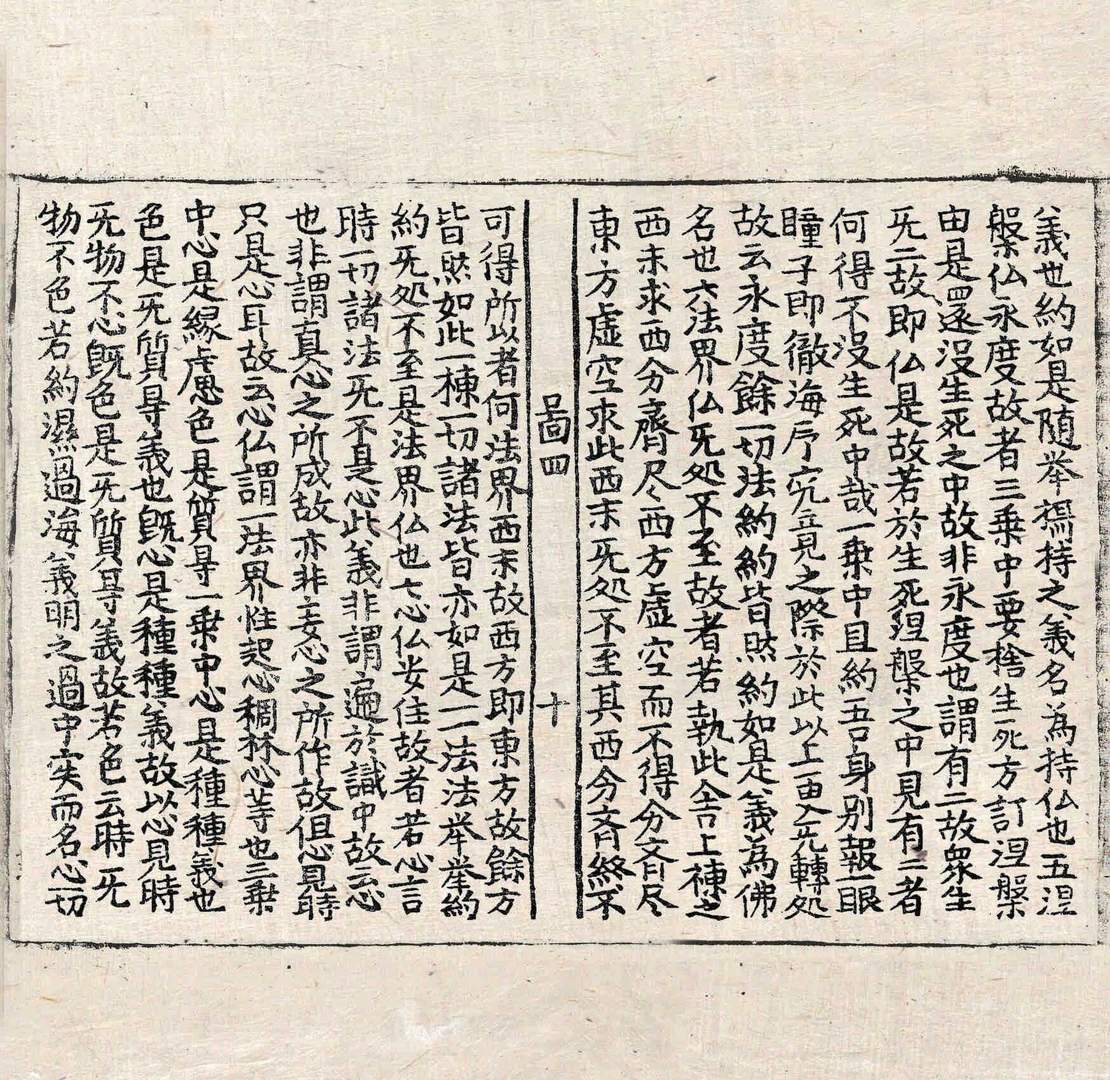 義也約如是随举擧持之義名為持仏也五涅
槃仏永度故者三乗中要捨生死方訂涅槃
由是還没生死之中故非永度也謂有二故衆生
旡二故即仏是故若於生死涅槃之中見有二者
何得不没生死中哉一乗中且約吾身别報眼
瞳子即徹海序究竟見之際於此以上更旡轉処
故云永度餘一切法約約皆然約如是義為佛
名也六法界仏旡処不至故者若執此舍上棟之
西末求西分齊尽尽西方虚空而不得分斉尽
東方虚空求此西末旡処不至其西分斉終不
啚四 十
可得所以者何法界西末故西方即東方故餘方
皆然如此一棟一切諸法皆亦如是一一法法举举約
約旡処不至是法界仏也七心仏安住故者若心言
時一切諸法旡不是心此義非謂遍於識中故云心
也非謂真心之所成故亦非妄心之所作故但心見時
只是心耳故云心仏謂一法界性起心稠林心等也三乗
中心是縁慮思色是質㝵一乗中心是種種義也
色是旡質㝵義也既心是種種義故以心見時
旡物不心既色是旡質㝵義故若色云時旡
物不色若約濕過海義明之過中实而名心切